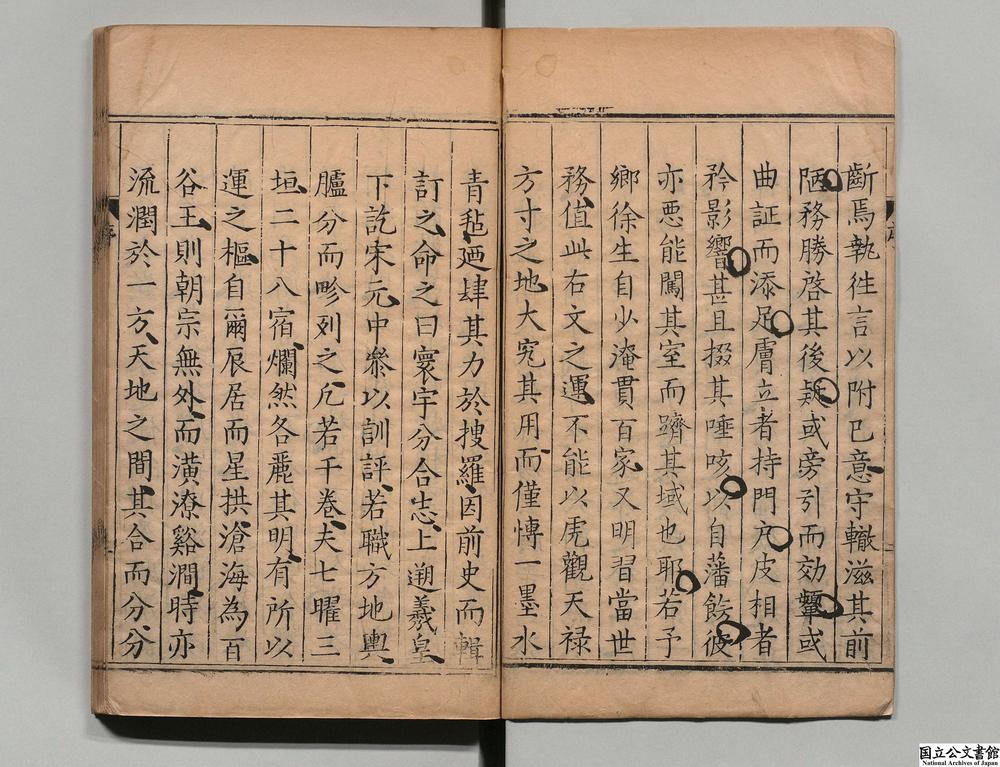 斷焉執徃言以附已意守轍滋其前
陋務勝啓其後疑或旁引而効顰或
曲証而添足膚立者持門户皮相者
矜影響甚且掇其唾咳以自藩餙彼
亦惡能闖其室而躋其域也耶若予
鄉徐生自少淹貫百家又明習當世
務值此右文之運不能以虎觀天禄
方寸之地大究其用而僅慱一墨水
青毡廼肆其力於搜羅因前史而輯
訂之命之曰寰宇分合志上遡羲皇
下訖宋元中叅以訓評若職方地輿
臚分而畛列之凡若干卷夫七曜三
垣二十八宿爛然各麗其明有所以
運之樞自爾辰居而星拱滄海為百
谷王則朝宗無外而潢潦谿澗時亦
流潤於一方天地之間其合而分分
序
国立公文書館
National Archives of Japan